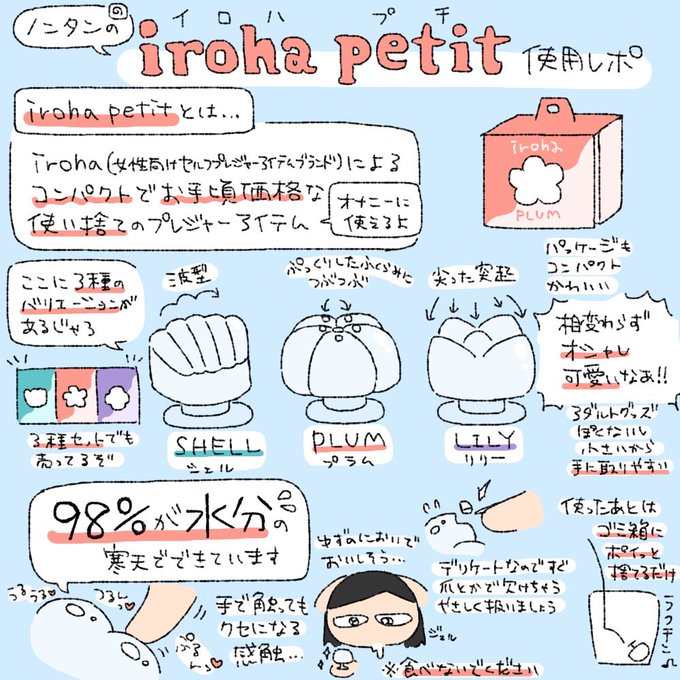 ノンタンの
イロハ プチ
iroha petit 使用レポ
iroha petitとは…
iroha(女性向けセルフプレジャーアイテムブランド)による
コンパクトでお手頃価格な
使い捨てのプレジャーアイテム
オナニーに
使えるよ
iroha
PLUM
パッケージも
コンパクト
かわいい
ここに3種の
バリエーションが
あるじゃろ
波型
ぷっくりしたふくらみに
つぶつぶ
尖った突起
相変わらず
オシャレ
可愛いなあ!!
3種セットでも
売ってるぞ
SHELL
シェル
PLUM
プラム
LILY
リリー
アダルトグッズ
ぽくないし
小さいから
手に取りやすい
98%が水分の
寒天でできています
うるうる♥
つるんっ♥
ぷるんっ♥
手で触っても
クセになる
感触…
ゆずのにおいで
おいしそう…
ジュル
※食べないでください
デリケートなのですぐ
爪とかで欠けちゃう
やさしく扱いましょう
使ったあとは
ゴミ箱に
ポイっと
捨てるだけ
ラクチン♫